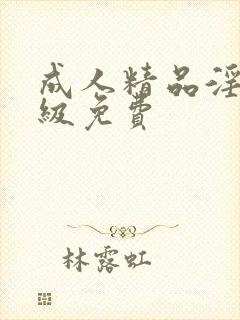 成人精品淫
级免費
林露虹